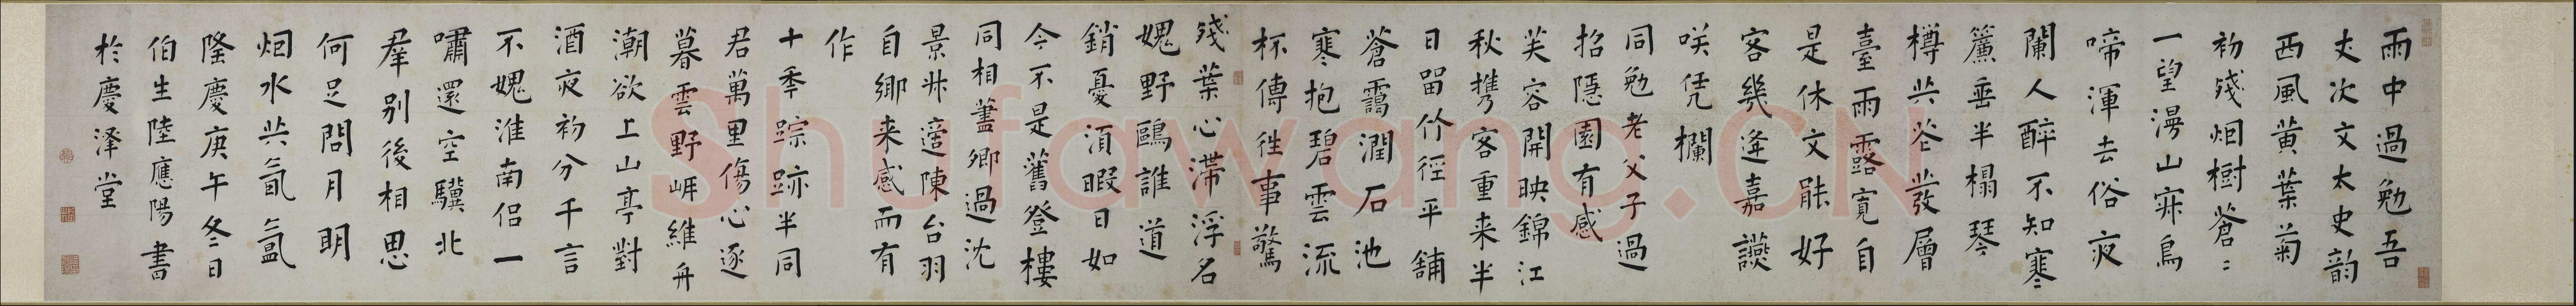 雨中過勉吾
丈次文太史韵
西風黃葉菊
初殘烟樹蒼〻
一望漫山寐鳥
啼渾去俗夜
闌人醉不知寒
簾垂半榻琴
樽共花發層
臺雨露寬自
是休文能好
客幾逢嘉讌
咲凭欄
同勉老父子過
招隱園有感
芙容開映錦江
秋攜客重来半
日留竹徑平舖
蒼靄潤石池
寒抱碧雲流
杯傳徃事驚
殘葉心滯浮名
媿野鷗誰道
銷憂湏暇日如
今不是舊登樓
同相藎卿過沈
景州遊陳台羽
自鄉来感而有
作
十年踪跡半同
君萬里傷心逐
暮雲野岸維舟
潮欲上山亭對
酒夜初分千言
不媿淮南侶一
嘯還空驥北
羣别後相思
何足問月明
烟水共氤氲
隆慶庚午冬日
伯生陸應陽書
於慶澤堂
Shufawang.CN